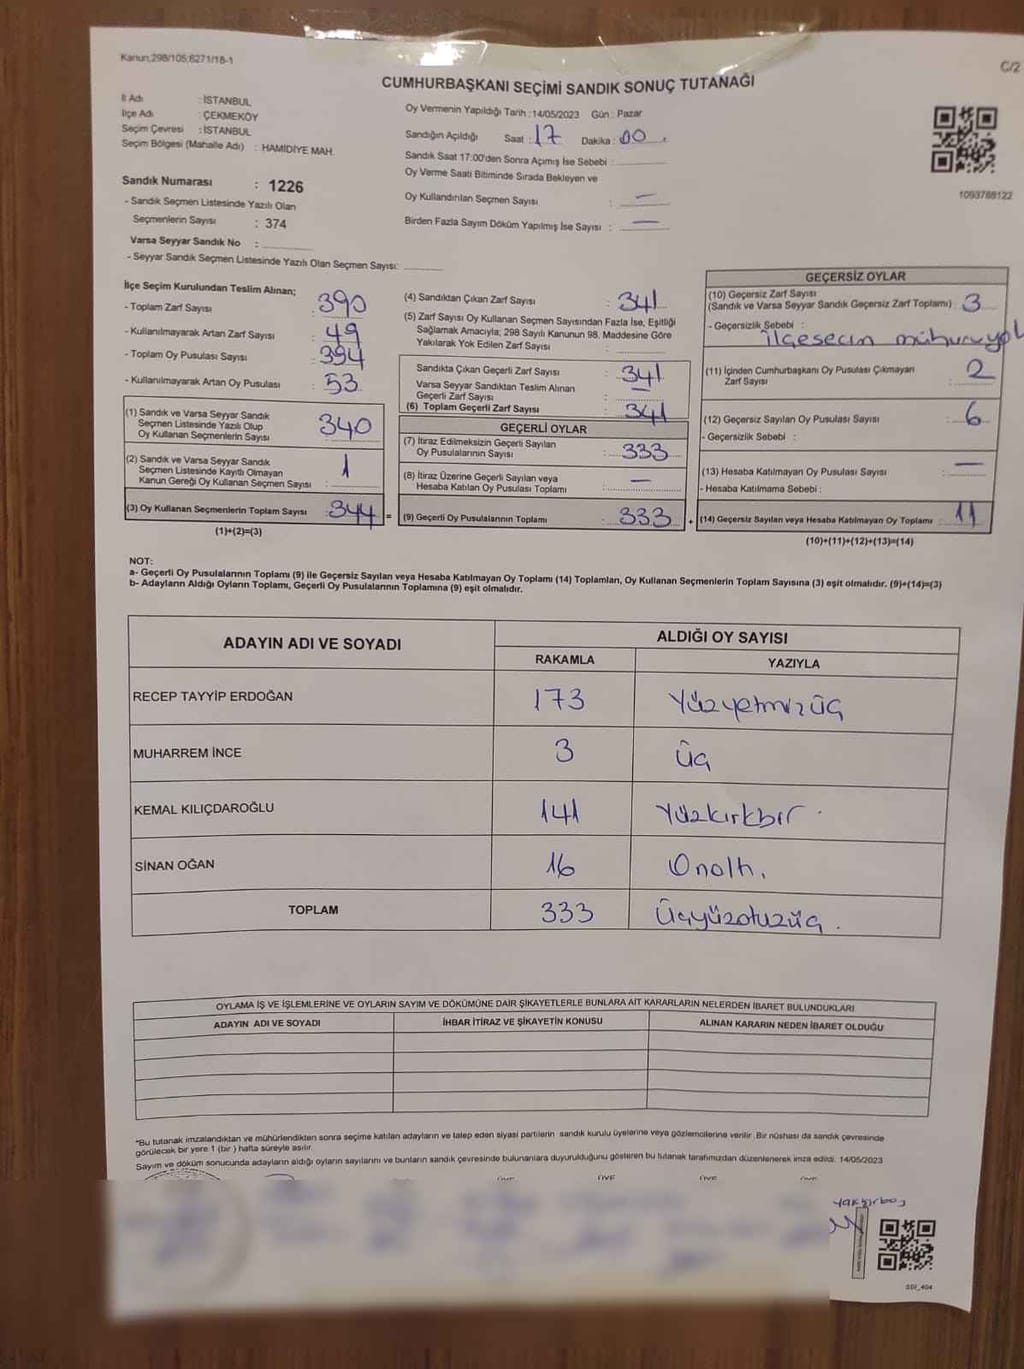 Kanun:298/105;6271/18-1
C/2
CUMHURBAŞKANI SEÇİMİ SANDIK SONUÇ TUTANAĞI
İl Adı : İSTANBUL
İlçe Adı : ÇEKMEKÖY
Seçim Çevresi : İSTANBUL
Seçim Bölgesi (Mahalle Adı) : HAMİDİYE MAH.
Oy Vermenin Yapıldığı Tarih :14/05/2023 Gün : Pazar
Sandığın Açıldığı Saat : 17 Dakika : 00
Sandık Saat 17:00'den Sonra Açımış İse Sebebi :
Oy Verme Saati Bitiminde Sırada Bekleyen ve
Oy Kullandırılan Seçmen Sayısı : —
Birden Fazla Sayım Döküm Yapılmış İse Sayısı : —
1093788122
Sandık Numarası : 1226
- Sandık Seçmen Listesinde Yazılı Olan
Seçmenlerin Sayısı : 374
Varsa Seyyar Sandık No :
- Seyyar Sandık Seçmen Listesinde Yazılı Olan Seçmen Sayısı:
İlçe Seçim Kurulundan Teslim Alınan;
- Toplam Zarf Sayısı : 390
- Kullanılmayarak Artan Zarf Sayısı : 49
- Toplam Oy Pusulası Sayısı : 394
- Kullanılmayarak Artan Oy Pusulası : 53
(1) Sandık ve Varsa Seyyar Sandık
Seçmen Listesinde Yazılı Olup
Oy Kullanan Seçmenlerin Sayısı : 340
(2) Sandık ve Varsa Seyyar Sandık
Seçmen Listesinde Kayıtlı Olmayan
Kanun Gereği Oy Kullanan Seçmen Sayısı : 1
(3) Oy Kullanan Seçmenlerin Toplam Sayısı : 344 =
(1)+(2)=(3)
(4) Sandıktan Çıkan Zarf Sayısı : 341
(5) Zarf Sayısı Oy Kullanan Seçmen Sayısından Fazla İse, Eşitliği
Sağlamak Amacıyla; 298 Sayılı Kanunun 98. Maddesine Göre
Yakılarak Yok Edilen Zarf Sayısı :
Sandıkta Çıkan Geçerli Zarf Sayısı : 341
Varsa Seyyar Sandıktan Teslim Alınan
Geçerli Zarf Sayısı : —
(6) Toplam Geçerli Zarf Sayısı : 341
GEÇERLİ OYLAR
(7) İtiraz Edilmeksizin Geçerli Sayılan
Oy Pusulalarının Sayısı : 333
(8) İtiraz Üzerine Geçerli Sayılan veya
Hesaba Katılan Oy Pusulası Toplamı : —
(9) Geçerli Oy Pusulalarının Toplamı : 333 +
GEÇERSİZ OYLAR
(10) Geçersiz Zarf Sayısı
(Sandık ve Varsa Seyyar Sandık Geçersiz Zarf Toplamı) : 3
- Geçersizlik Sebebi :
ilçesecim mühürüyok
(11) İçinden Cumhurbaşkanı Oy Pusulası Çıkmayan
Zarf Sayısı : 2
(12) Geçersiz Sayılan Oy Pusulası Sayısı : 6
- Geçersizlik Sebebi :
(13) Hesaba Katılmayan Oy Pusulası Sayısı : —
- Hesaba Katılmama Sebebi :
(14) Geçersiz Sayılan veya Hesaba Katılmayan Oy Toplamı : 11
(10)+(11)+(12)+(13)=(14)
NOT:
a- Geçerli Oy Pusulalarının Toplamı (9) ile Geçersiz Sayılan veya Hesaba Katılmayan Oy Toplamı (14) Toplamları, Oy Kullanan Seçmenlerin Toplam Sayısına (3) eşit olmalıdır. (9)+(14)=(3)
b- Adayların Aldığı Oyların Toplamı, Geçerli Oy Pusulalarının Toplamına (9) eşit olmalıdır.
ADAYIN ADI VE SOYADI ALDIĞI OY SAYISI
RAKAMLA YAZIYLA
RECEP TAYYİP ERDOĞAN 173 Yüzyetmizüç
MUHARREM İNCE 3 üç
KEMAL KILIÇDAROĞLU 141 Yüzkırkbir
SİNAN OĞAN 16 Onaltı.
TOPLAM 333 Üçyüzotuzüç.
OYLAMA İŞ VE İŞLEMLERİNE VE OYLARIN SAYIM VE DÖKÜMÜNE DAİR ŞİKAYETLERLE BUNLARA AİT KARARLARIN NELERDEN İBARET BULUNDUKLARI
ADAYIN ADI VE SOYADI İHBAR İTİRAZ VE ŞİKAYETİN KONUSU ALINAN KARARIN NEDEN İBARET OLDUĞU
*Bu tutanak imzalandıktan ve mühürlendikten sonra seçime katılan adayların ve talep eden siyasi partilerin sandık kurulu üyelerine veya gözlemcilerine verilir. Bir nüshası da sandık çevresinde
görülecek bir yere 1 (bir ) hafta süreyle asılır.
Sayım ve döküm sonucunda adayların aldığı oyların sayılarını ve bunların sandık çevresinde bulunanlara duyurulduğunu gösteren bu tutanak tarafımızdan düzenlenerek imza edildi. 14/05/2023